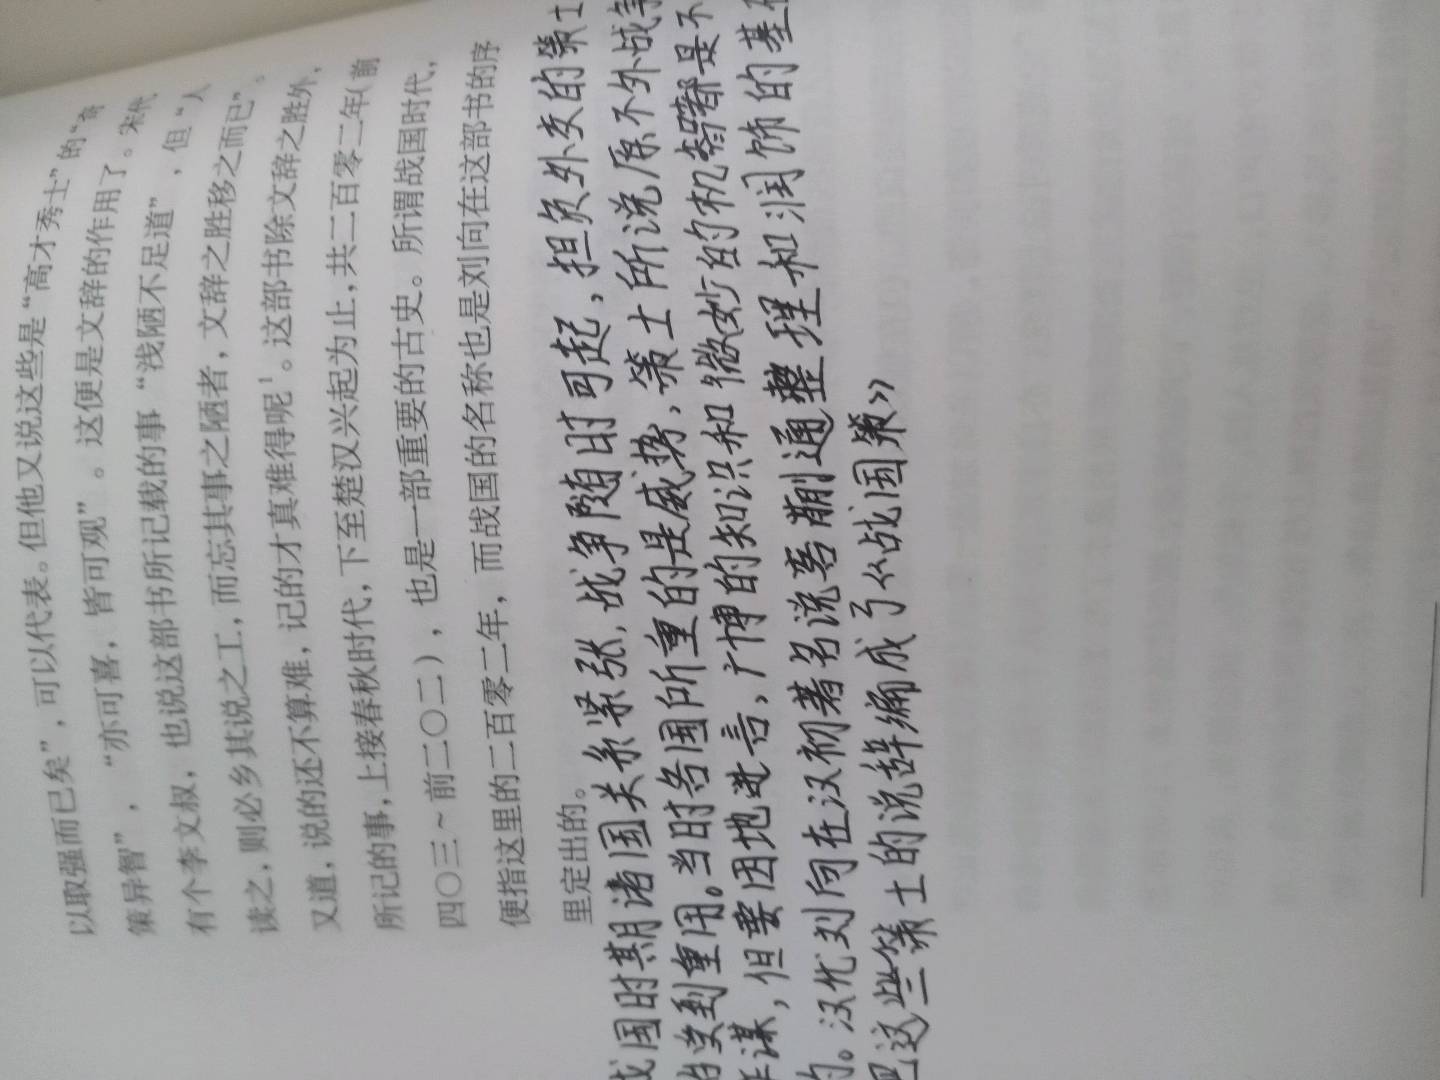 以取强而已矣”，可以代表。但他又说这些是“高才秀士”的“奇
策异智”，“亦可喜，皆可观”。这便是文辞的作用了。宋代
有个李文叔，也说这部书所记载的事“浅陋不足道”，但“人
读之，则必乡其说之工，而忘其事之陋者，文辞之胜移之而已”。
又道，说的还不算难，记的才真难得呢¹。这部书除文辞之胜外，
所记的事，上接春秋时代，下至楚汉兴起为止，共二百零二年（前
四〇三～前二〇二），也是一部重要的古史。所谓战国时代，
便指这里的二百零二年，而战国的名称也是刘向在这部书的序
里定出的。
战国时期诸国关系紧张，战争随时可起，担负外交的策士
受到重用。当时各国所重的是威势，策士所说原不外战争
谋，但要因地进言，广博的知识和微妙的机智都是不
的。汉代刘向在汉初著名说客蒯通整理和润饰的基
把这些策士的说辞编成了《战国策》